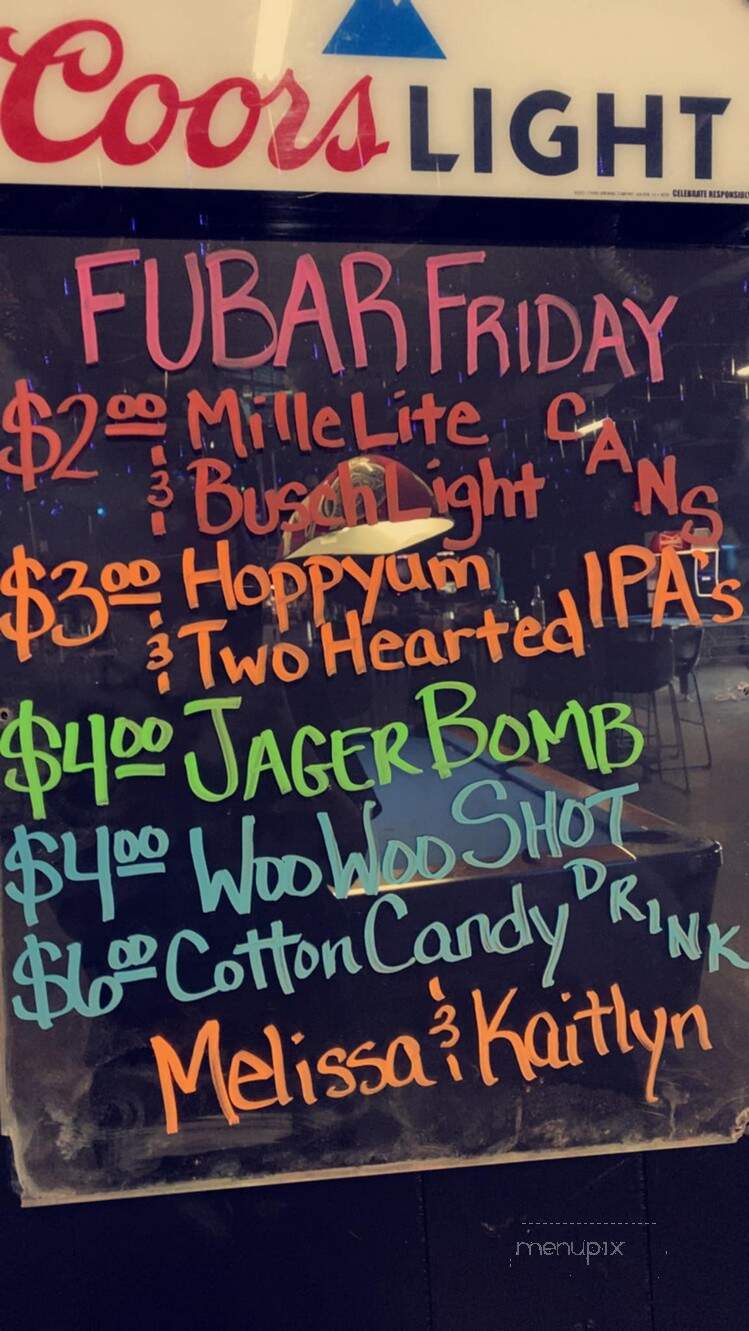 Coors LIGHT
CELEBRATE RESPONSIBLY
FUBAR FRIDAY
$2.00 Mille Lite CANS
& Busch Light
$3.00 Hoppyum IPA's
& Two Hearted
$4.00 JAGER BOMB
$4.00 Woo Woo SHOT
$6.00 Cotton Candy DRINK
Melissa & Kaitlyn
menupix